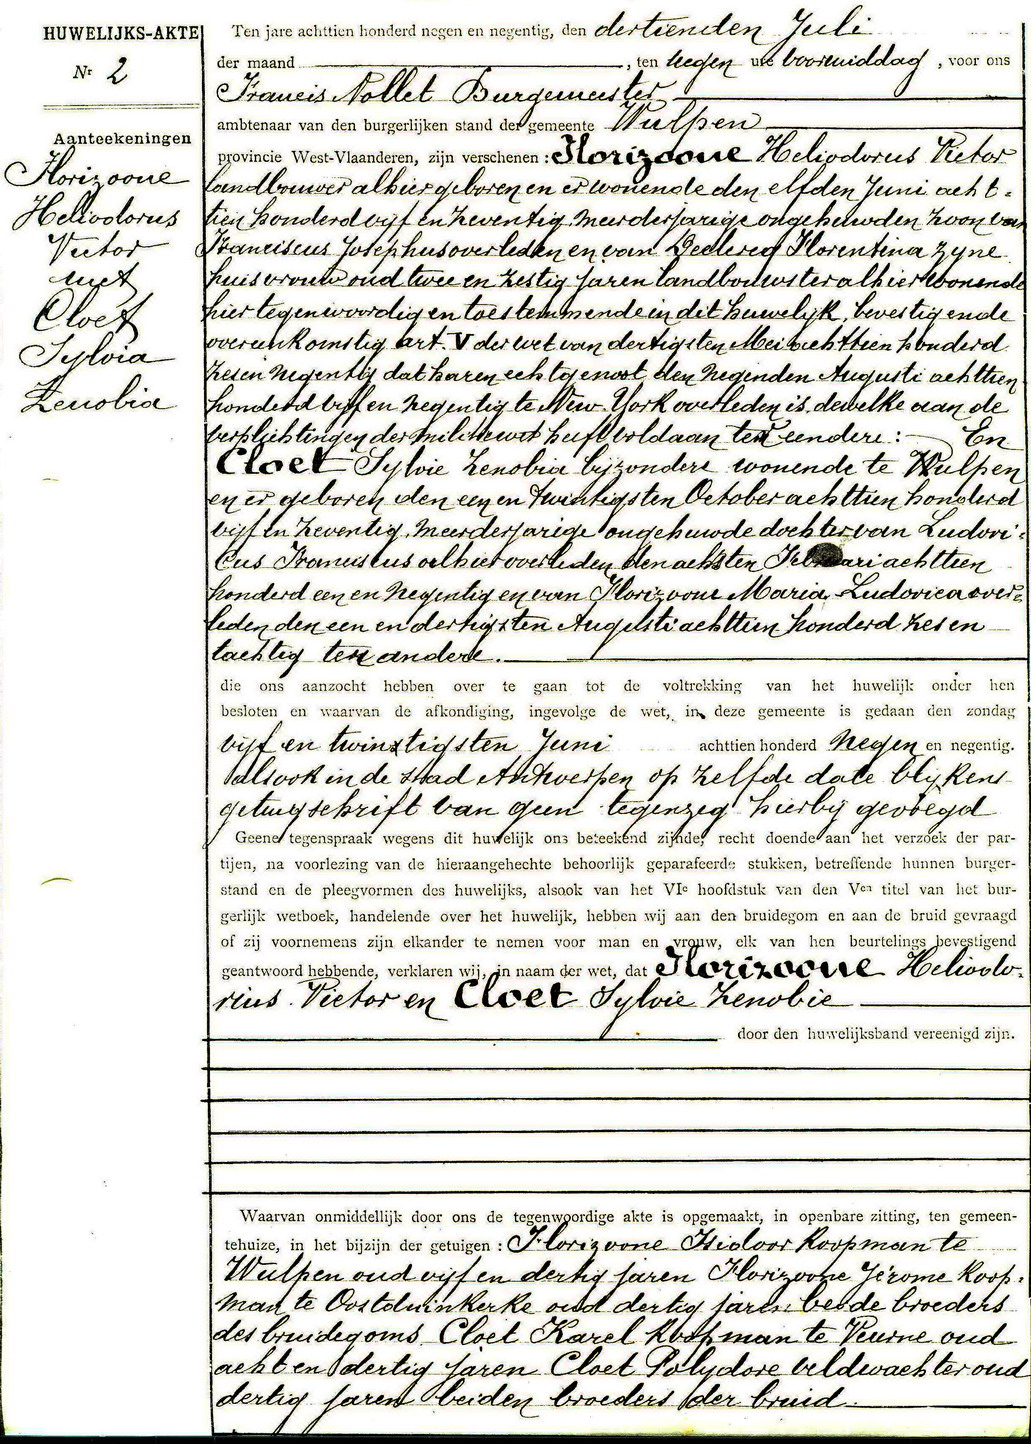 HUWELIJKS-AKTE
Nr 2
Aanteekeningen
Florizoone
Heliodorus
Victor
met
Cloet
Sylvia
Zenobia
Ten jare achttien honderd negen en negentig, den dertienden Juli
der maand , ten negen ure voormiddag , voor ons
Francis Nollet Burgemeester
ambtenaar van den burgerlijken stand der gemeente Wulpen
provincie West-Vlaanderen, zijn verschenen : Florizoone Heliodorus Victor
landbouwer alhier geboren en er wonende den elfden Juni acht-
tien honderd vijf en zeventig, meerderjarige ongehuwden zoon van
Franciscus Josephus overleden en van Declercq Florentina zyne
huisvrouw oud twee en zestig jaren landbouwster alhier wonende
hier tegenwoordig en toestemmende in dit huwelyk, bevestigende
overeenkomstig art. V der wet van dertigsten Mei achttien honderd
zes en negentig dat haren echtgenoot den negenden Augusti achttien
honderd vijf en negentig te New-York overleden is, dewelke aan de
verplichtingen der militiewet heeft voldaan ter eendere : En
Cloet Sylvie Zenobia byzondere wonende te Wulpen
en er geboren den een en twintigsten October achttien honderd
vijf en zeventig, meerderjarige ongehuwde dochter van Ludovi-
cus Franciscus alhier overleden den achsten Februari achttien
honderd een en negentig en van Florizoone Maria Ludovica over-
leden den een en dertigsten Augusti achttien honderd zes en
tachtig ten andere.
die ons aanzocht hebben over te gaan tot de voltrekking van het huwelijk onder hen
besloten en waarvan de afkondiging, ingevolge de wet, in deze gemeente is gedaan den zondag
vijf en twinstigsten Juni achttien honderd negen en negentig.
alsook in de stad Antwerpen op zelfde date blykens
getuigschrift van geen tegenzeg hierby gevoegd
Geene tegenspraak wegens dit huwelijk ons beteekend zijnde, recht doende aan het verzoek der par-
tijen, na voorlezing van de hieraangehechte behoorlijk geparafeerde stukken, betreffende hunnen burger-
stand en de pleegvormen des huwelijks, alsook van het VIe hoofdstuk van den Ven titel van het bur-
gerlijk wetboek, handelende over het huwelijk, hebben wij aan den bruidegom en aan de bruid gevraagd
of zij voornemens zijn elkander te nemen voor man en vrouw, elk van hen beurtelings bevestigend
geantwoord hebbende, verklaren wij, in naam der wet, dat Florizoone Heliodo-
rius Victor en Cloet Sylvie Zenobie
door den huwelijksband vereenigd zijn.
Waarvan onmiddelijk door ons de tegenwoordige akte is opgemaakt, in openbare zitting, ten gemeen-
tehuize, in het bijzijn der getuigen : Florizoone Isidoor Koopman te
Wulpen oud vijf en dertig jaren Florizoone Jérome Koop-
man te Oostduinkerke oud dertig jaren beide broeders
des bruidegoms Cloet Karel Koopman te Veurne oud
acht en dertig jaren Cloet Polydore veldwachter oud
dertig jaren beiden broeders der bruid.